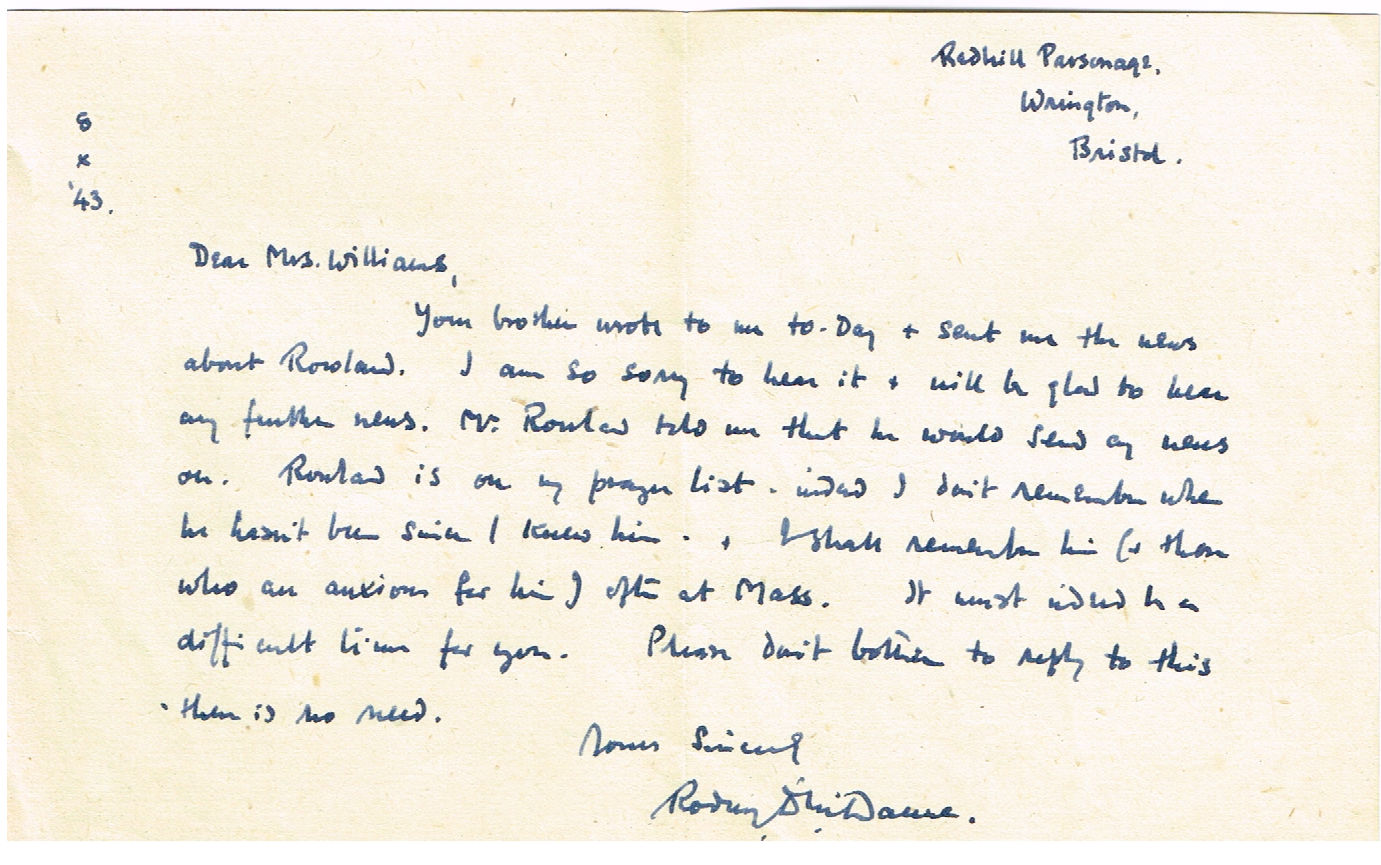 Redhill Parsonage,
Wrington,
Bristol.
8
x
'43.
Dear Mrs. Williams,
Your brother wrote to me to-Day + sent me the news
about Rowland. I am so sorry to hear it + will be glad to hear
any further news. Mr. Rowland told me that he would send any news
on. Rowland is on my prayer list - indeed I don't remember when
he hasn't been since I knew him - + I shall remember him (+ those
who are anxious for him) often at Mass. It must indeed be a
difficult time for you. Please don't bother to reply to this
- there is no need.
Yours Sincerely
Rodney